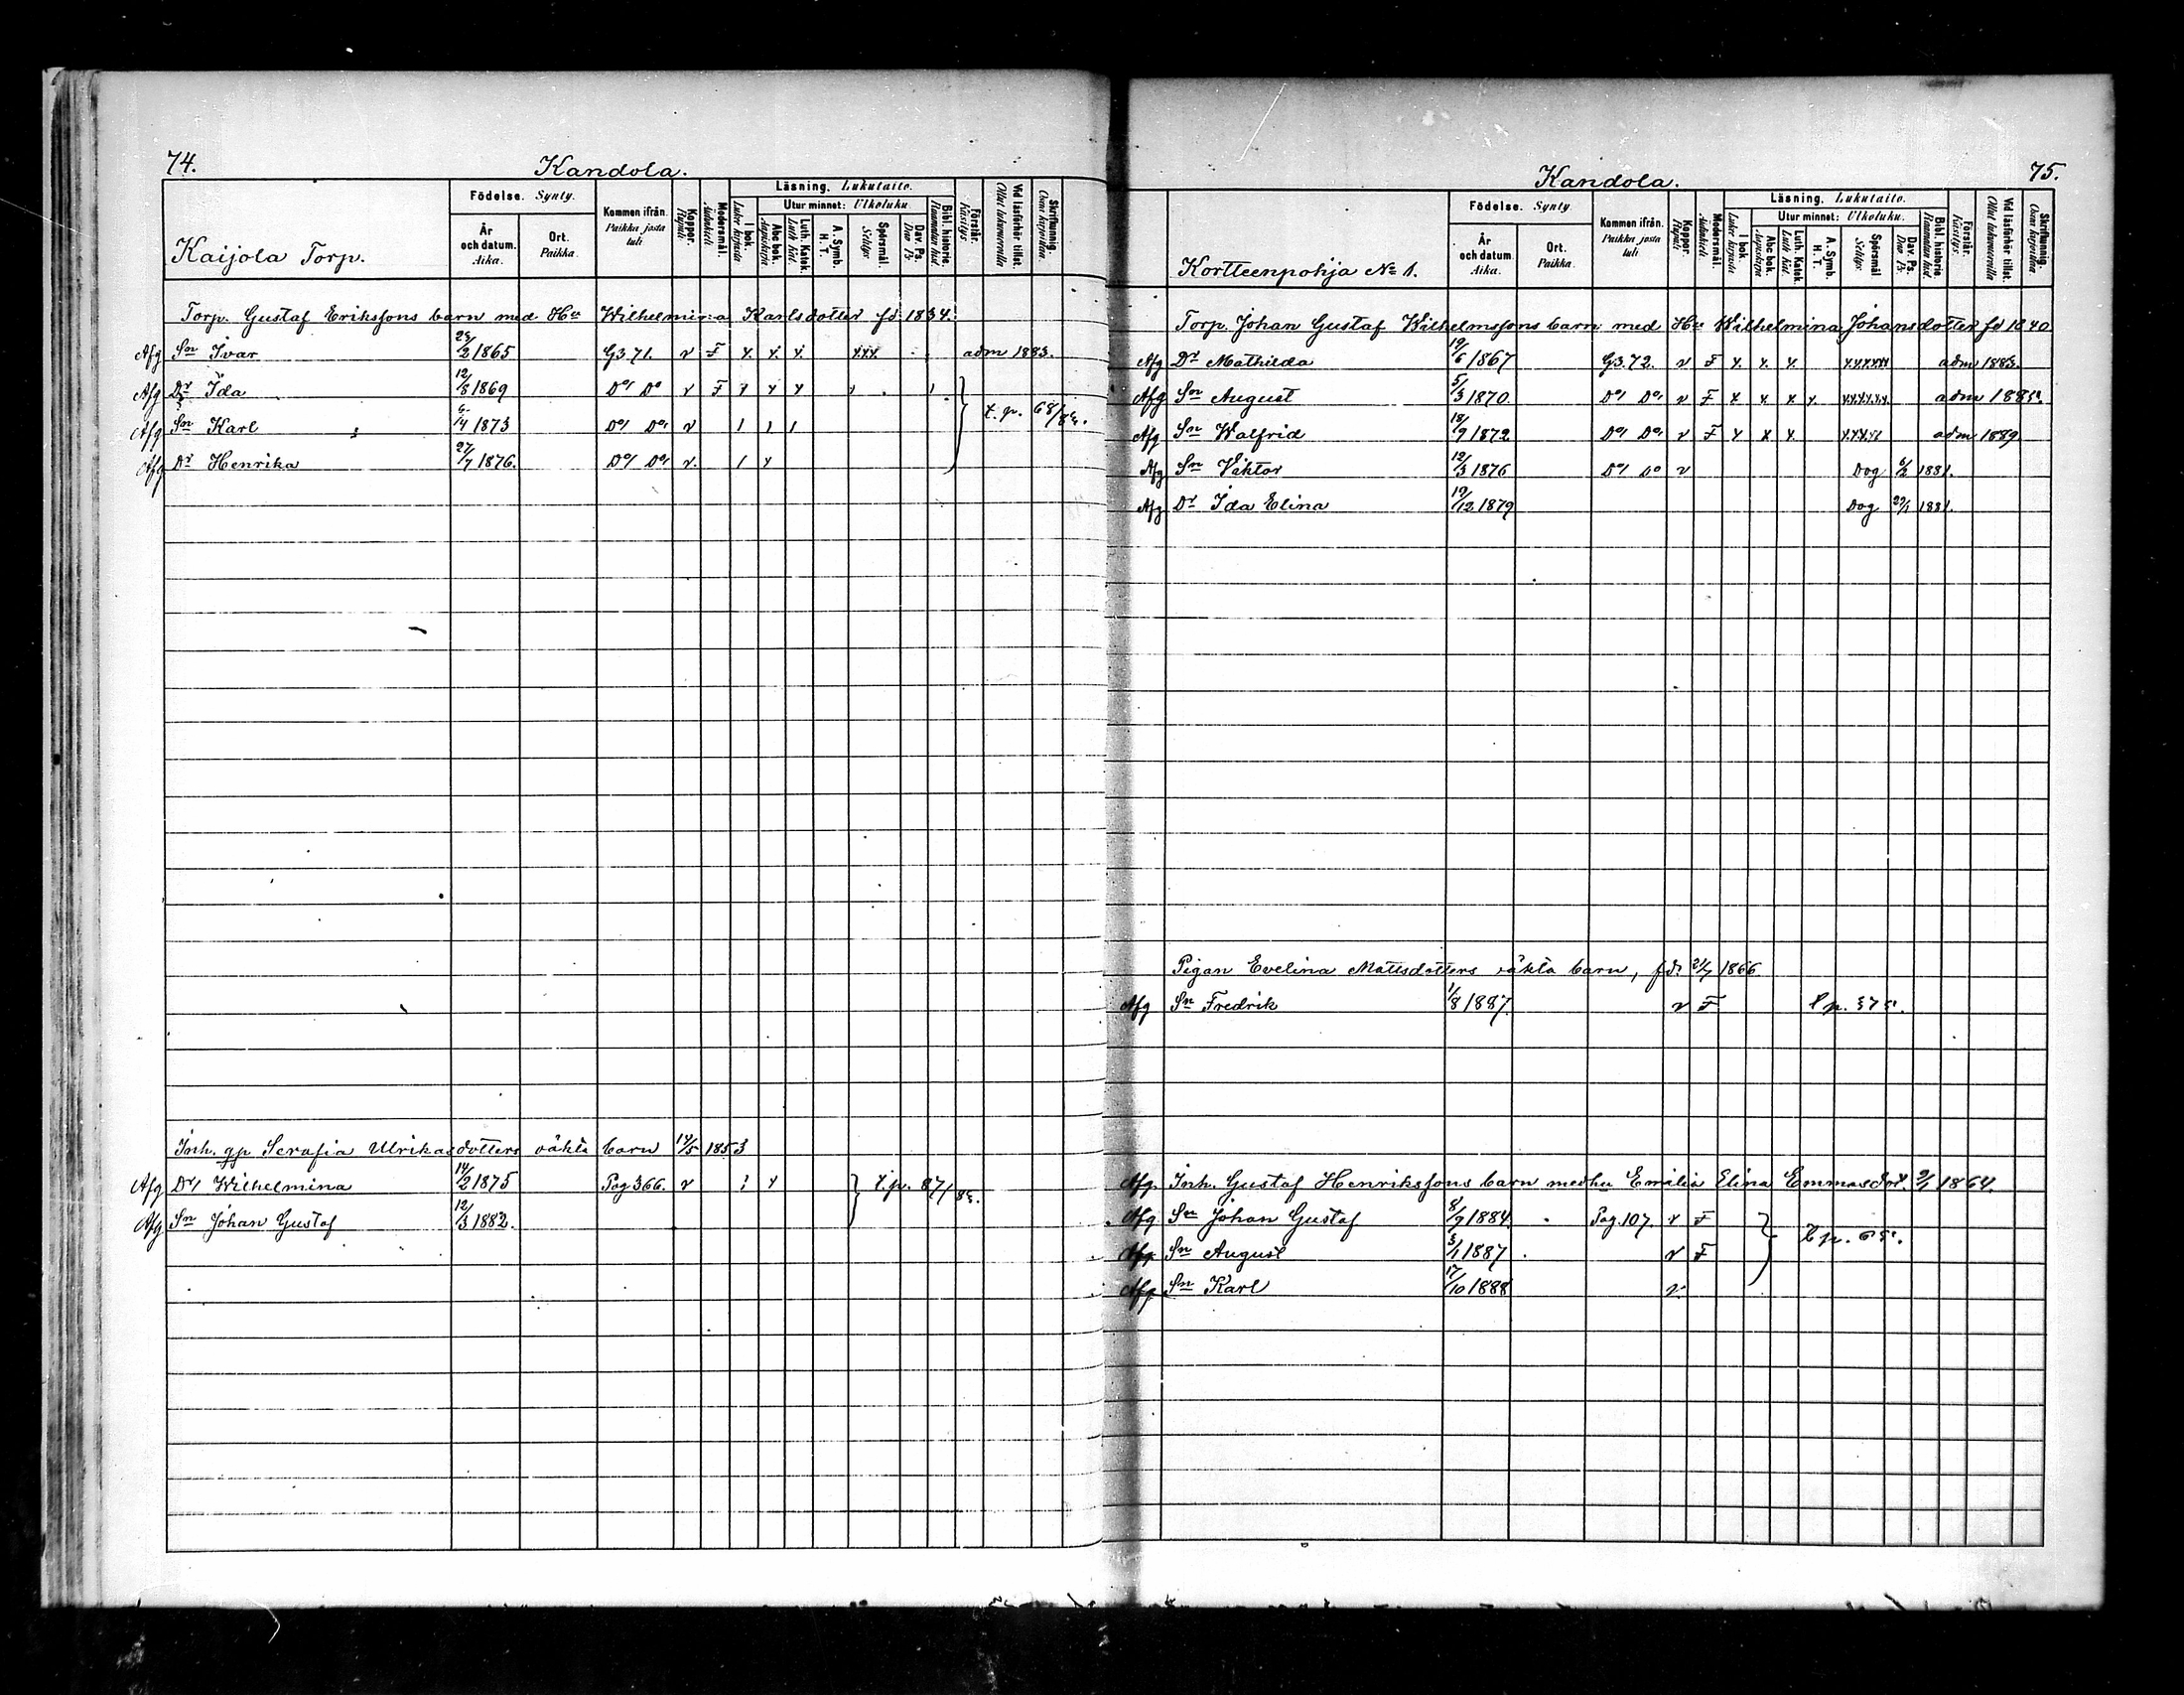 74.
Kandola.
Kaijola Torp.
Födelse. Synty.
År och datum. Aika.
Ort. Paikka.
Kommen ifrån. Paikka josta tuli
Koppor. Rupuli
Modersmål. Äidinkieli
Läsning. Lukutaito.
I bok. Lukee kirjasta
Utur minnet: Ulkoluku.
Abc bok. Aapiskirja
Luth. Katek. Luth. Kat.
A. Symb. H. T.
Spörsmål. Selitys.
Dav. Ps. Dav. Ps.
Bibl. historie. Raamatun hist.
Förstår. Käsitys.
Vid läsförhör tillst. Ollut lukuvuorolla
Skrifkunnig. Osaa kirjoittaa.
Torp. Gustaf Erikssons barn med Hu Wilhelmina Karlsdotter fd. 1834.
Afg Sn Ivar 24/2 1865 G3 71. v F x. x. x. xxx. adm 1883.
Afg Dr Ida 12/8 1869 Do/ Do v F
Afg Sn Karl 1873 Do/ Do/ v t. p. 68/
Afg Dr Henrika 27/7 1876. Do/ Do/ v.
Inh. gp Serafia Ulrikasdotters oäkta barn 14/5 1853
Afg Dr/ Wilhelmina 14/2 1875 Pag 366. v t. p. 87/
Afg Sn Johan Gustaf 12/3 1882.
Kandola.
75.
Kortteenpohja No 1.
Födelse. Synty
År och datum. Aika.
Ort. Paikka.
Kommen ifrån. Paikka josta tuli
Koppor. Rupuli
Modersmål. Äidinkieli
Läsning. Lukutaito.
I bok. Lukee kirjasta
Utur minnet: Ulkoluku.
Abc bok. Aapiskirja
Luth. Katek. Luth. Kat.
A. Symb. H. T.
Spörsmål Selitys
Dav. Ps. Dav. Ps.
Bibl. historie. Raamatun hist.
Förstår. Käsitys.
Vid läsförhör tillst. Ollut lukuvuorolla
Skrifkunnig. Osaa kirjoittaa
Torp. Johan Gustaf Wilhelmssons barn med Hu Wilhelmina Johansdotter fd 1840
Afg Dr Mathilda 19/6 1867 G3. 72. v F x. x. x. adm 1883.
Afg Sn August 5/3 1870. Do/ Do/ v F x x. x x. adm 1885.
Afg Sn Walfrid 18/9 1872 Do/ Do/ v F x x x. adm 1889
Afg Sn Viktor 12/3 1876 Do/ Do v Dog 6/2 1881.
Afg Dr Ida Elina 19/12 1879 Dog 29/1 1881.
Pigan Evelina Mattsdotters oäkta barn, fd. 21/7 1866
Afg Sn Fredrik 1/8 1887. v F t. p. 375.
Afg. Inh. Gustaf Henrikssons barn med hu Emilia Elina Emmasdot. 9/1 1864.
Afg Sn Johan Gustaf 8/9 1884. Pag. 107. v F
Afg Sn August 3/1 1887. v F t. p. 65.
Afg Sn Karl 17/10 1888 v.